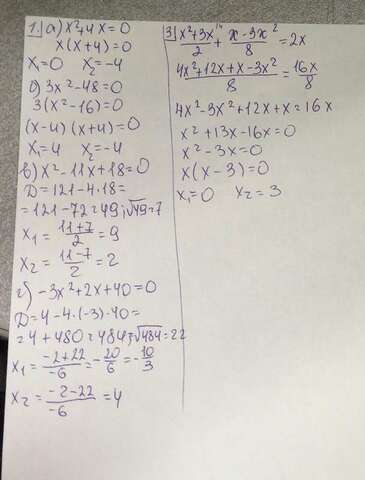 1. а) x²+4x=0
x(x+4)=0
x₁=0 x₂=-4
б) 3x²-48=0
3(x²-16)=0
(x-4)(x+4)=0
x₁=4 x₂=-4
в) x²-11x+18=0
D=121-4·18=
=121-72=49; √49=7
x₁=(11+7)/2=9
x₂=(11-7)/2=2
г) -3x²+2x+40=0
D=4-4·(-3)·40=
=4+480=484; √484=22
x₁=(-2+22)/-6=-20/6=-10/3
x₂=(-2-22)/-6=4
3. (x²+3x)/2 + (x-3x²)/8=2x
(4x²+12x+x-3x²)/8=16x/8
4x²-3x²+12x+x=16x
x²+13x-16x=0
x²-3x=0
x(x-3)=0
x₁=0 x₂=3